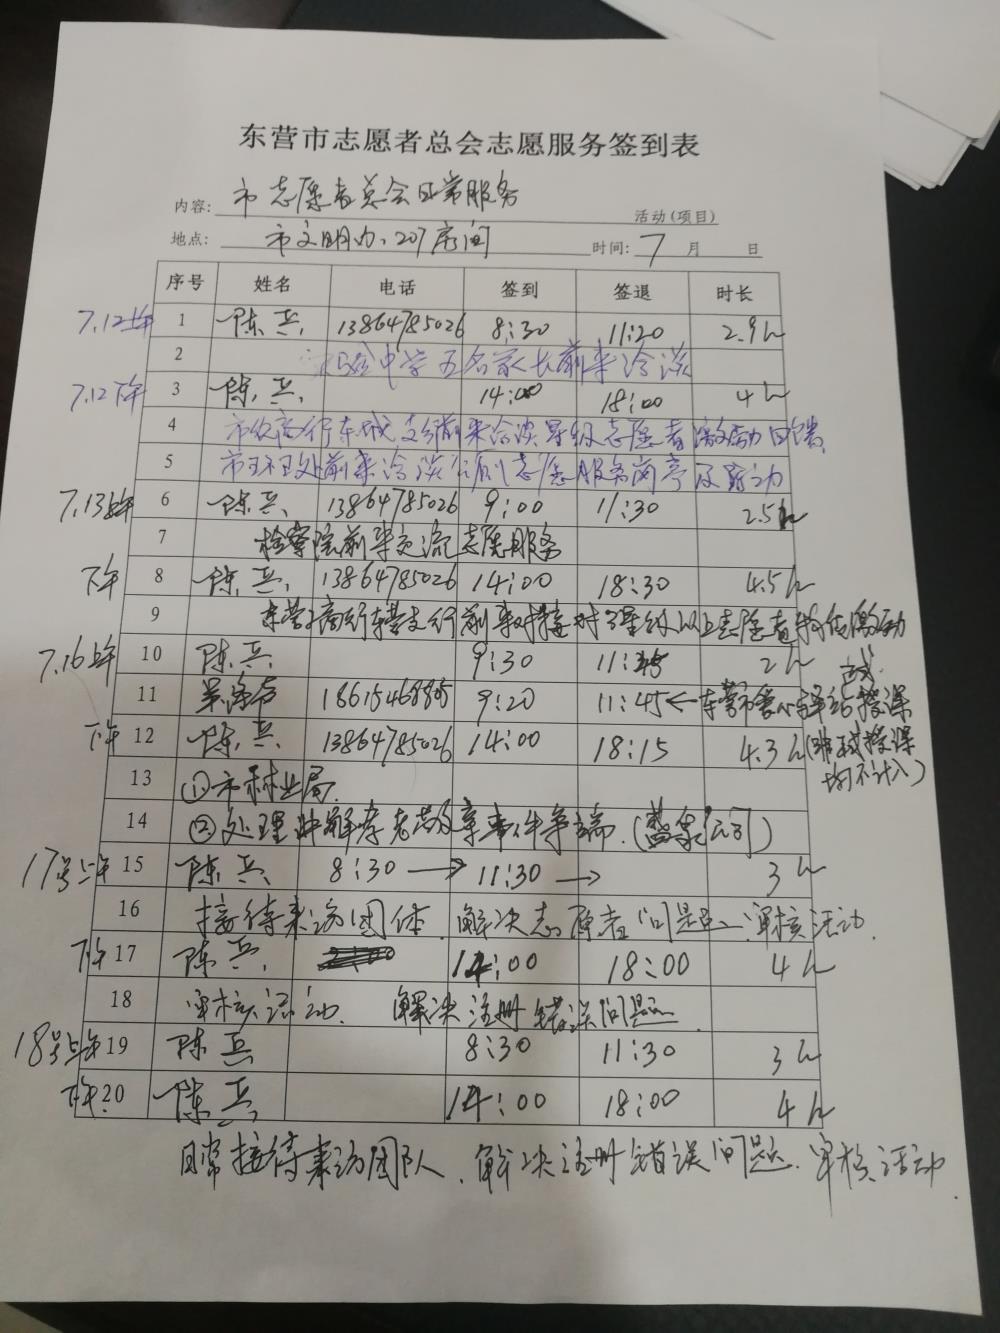 东营市志愿者总会志愿服务签到表
内容: 市志愿者总会日常服务 活动(项目)
地点: 市文明办、207房间 时间: 7 月 日
序号 姓名 电话 签到 签退 时长
7.12上午 1 陈兵 13864785026 8:30 11:20 2.9h
2 中学五名家长前来洽谈
7.12下午 3 陈兵 14:00 18:00 4h
4 市农商行东城支行前来洽谈星级志愿者激励回馈
5 市环卫处前来洽谈 志愿服务岗亭及活动
7.13上午 6 陈兵 13864785026 9:00 11:30 2.5h
7 检察院前来交流志愿服务
下午 8 陈兵 13864785026 14:00 18:30 4.5h
9 东营农商行东营支行前来对接对3星级以上志愿者 激励
7.16上午 10 陈兵 9:30 11:45 2h
11 18615468885 9:20 11:45 ← 东营市爱心驿站授课
下午 12 陈兵 13864785026 14:00 18:15 4.3h (面试授课
均不计入)
13 ①市林业局
14 ②处理调解孝老 事件争端
17号上午 15 陈兵 8:30 → 11:30 → 3h
16 接待来访团体、解决志愿者问题、审核活动.
下午 17 陈兵 14:00 18:00 4h
18 审核活动、解决注册错误问题
18号上午 19 陈兵 8:30 11:30 3h
下午 20 陈兵 14:00 18:00 4h
日常接待来访团队、解决注册错误问题、审核活动.